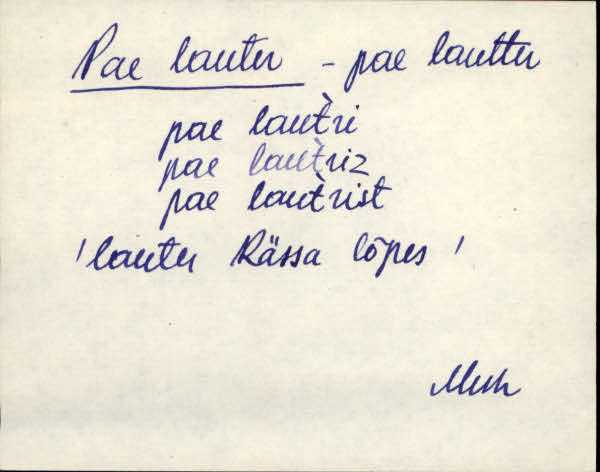 Pae lauter - pae lautter
pae laut̀ri
pae laut̀riz
pae laut̀rist
'lauter Rässa lõpes'